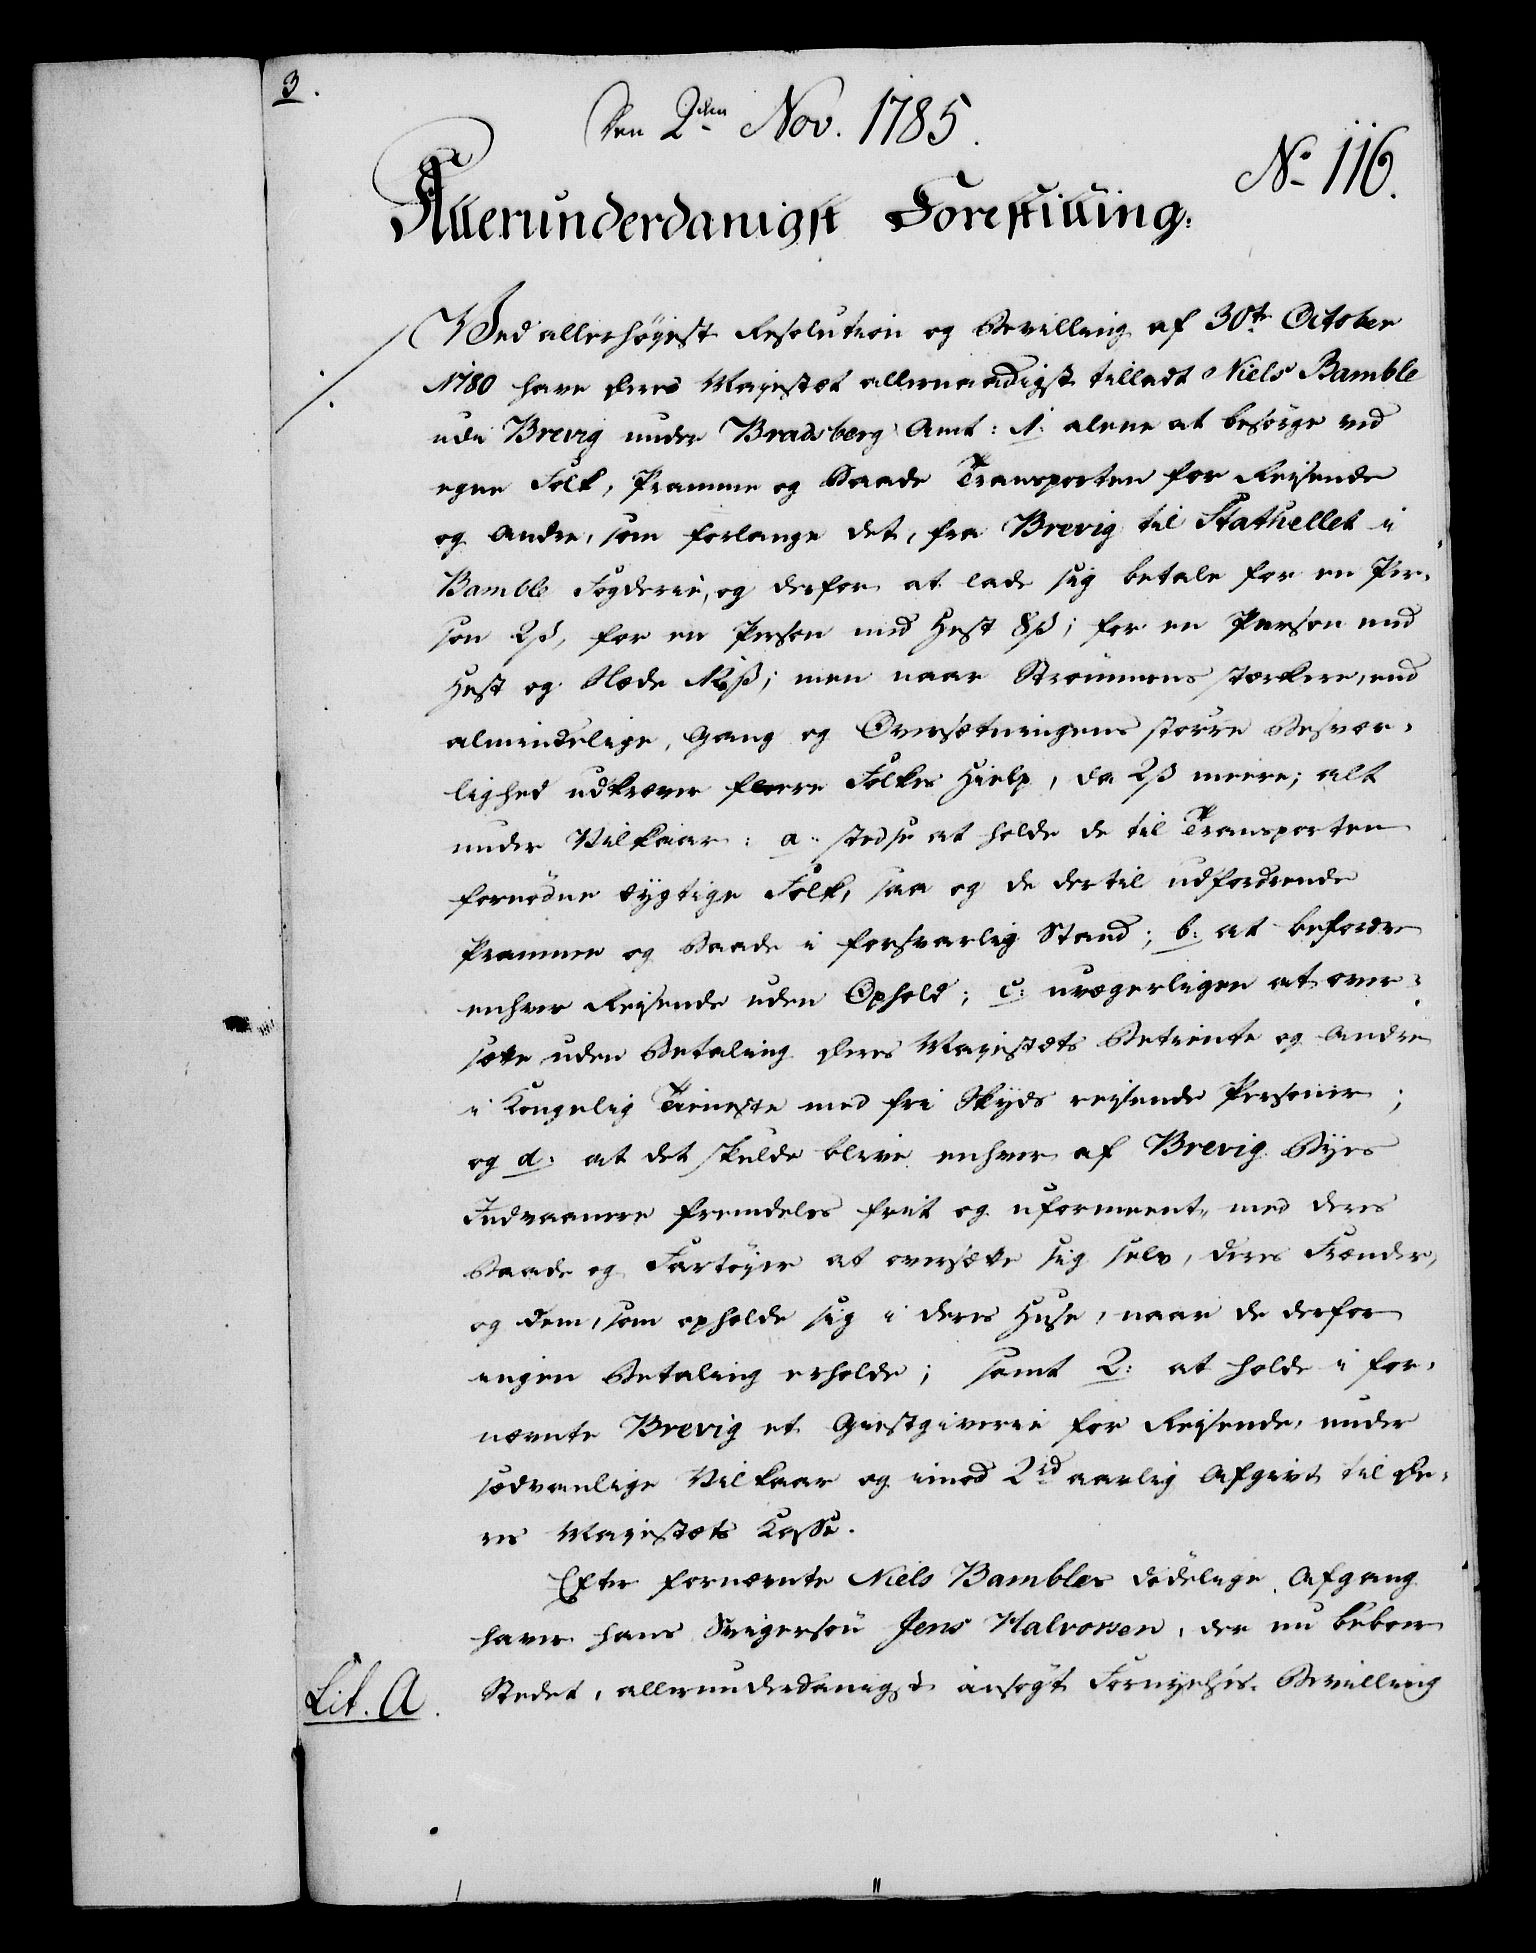 3.
Den 2den Nov. 1785.
No 116.
Allerunderdanigst Forestilling.
Ved allerhøyest Resolution og Bevilling af 30te October
1780 have Deres Majestæt allernaadigst tilladt Niels Bamble
udi Brevig under Bradsberg Amt: 1: alene at besørge ved
egne Folk, Pramme og Baade Transporten for Reysende
og Andre, som forlange det, fra Brevig til Stathellet i
Bamble Fogderie, og derfor at lade sig betale for en Per-
son 2ß, for en Person med Hest 8ß; for en Person med
Hest og Slæde 12ß; men naar Strømmens stærkere, end
almindelige, Gang og Oversætningens større Besvær-
lighed udkræver fleere Folkes Hielp, da 2ß meere; alt
under Vilkaar: a: stedse at holde de til Transporten
fornødne dygtige Folk, saa og de dertil udfordrende
Pramme og Baade i forsvarlig Stand; b: at befordre
enhver Reysende uden Ophold; c: uvægerligen at over-
sætte uden Betaling Deres Majestæts Betiente og Andre
i Kongelig Tieneste med fri Skyds reysende Personer;
og d: at det skulde blive enhver af Brevig Byes
Indvaanere fremdeles frit og uformeent, med deres
Baade og Fartøyer at oversætte sig selv, deres Frænder,
og dem, som opholde sig i deres Huse, naar de derfor
ingen Betaling erholde; samt 2: at holde i for-
nævnte Brevig et Giestgiverie for Reysende, under
sædvanlige Vilkaar og imod 2rd aarlig Afgivt til De-
res Majestæts Casse.
Efter fornævnte Niels Bambles dødelige Afgang
haver hans Svigersøn Jens Halvorsen, der nu beboer
Lit. A.
Stedet, allerunderdanigst ansøgt Fornyelses-Bevilling